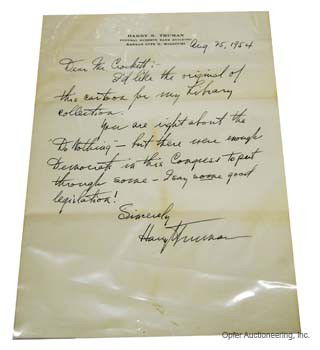 HARRY S. TRUMAN
FEDERAL RESERVE BANK BUILDING
KANSAS CITY 6, MISSOURI
Aug 25, 1954
Dear Mr. Crockett:-
I'd like the original of
this cartoon for my Library
collection.
You are right about the
Do Nothing - but there were enough
Democrats in this Congress to put
through some - I say some good
legislation!
Sincerely
Harry Truman
Opfer Auctioneering, Inc.